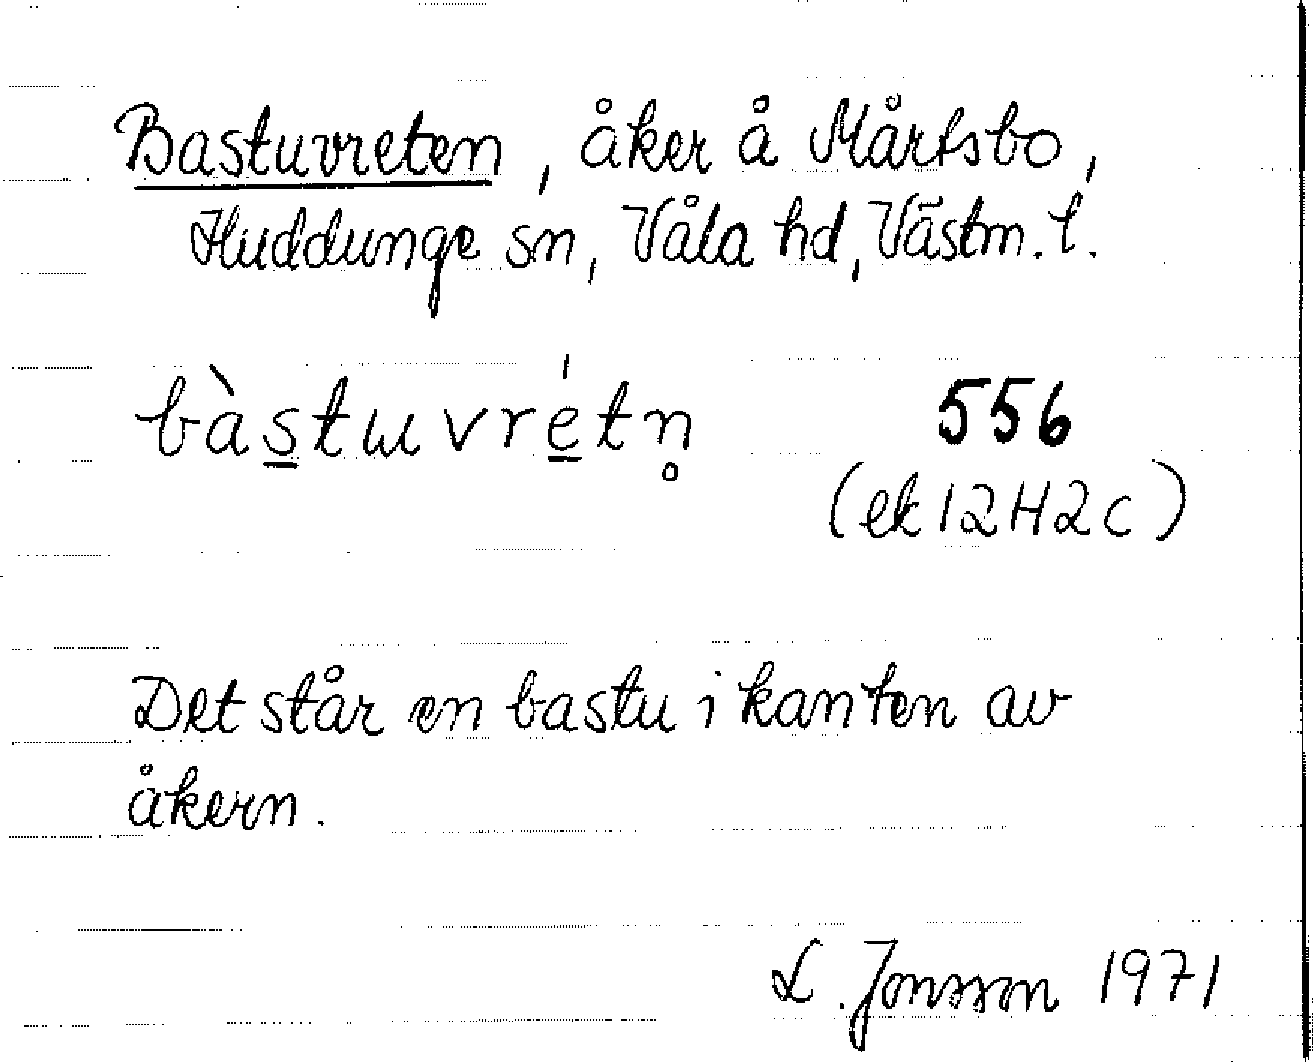 Bastuvreten, åker å Mårtsbo,
Huddunge sn, Våla hd, Västm. l.
bàs̲tɯvré̲tn̥ 556
(ek 12H2c)
Det står en bastu i kanten av
åkern.
L. Jonsson 1971